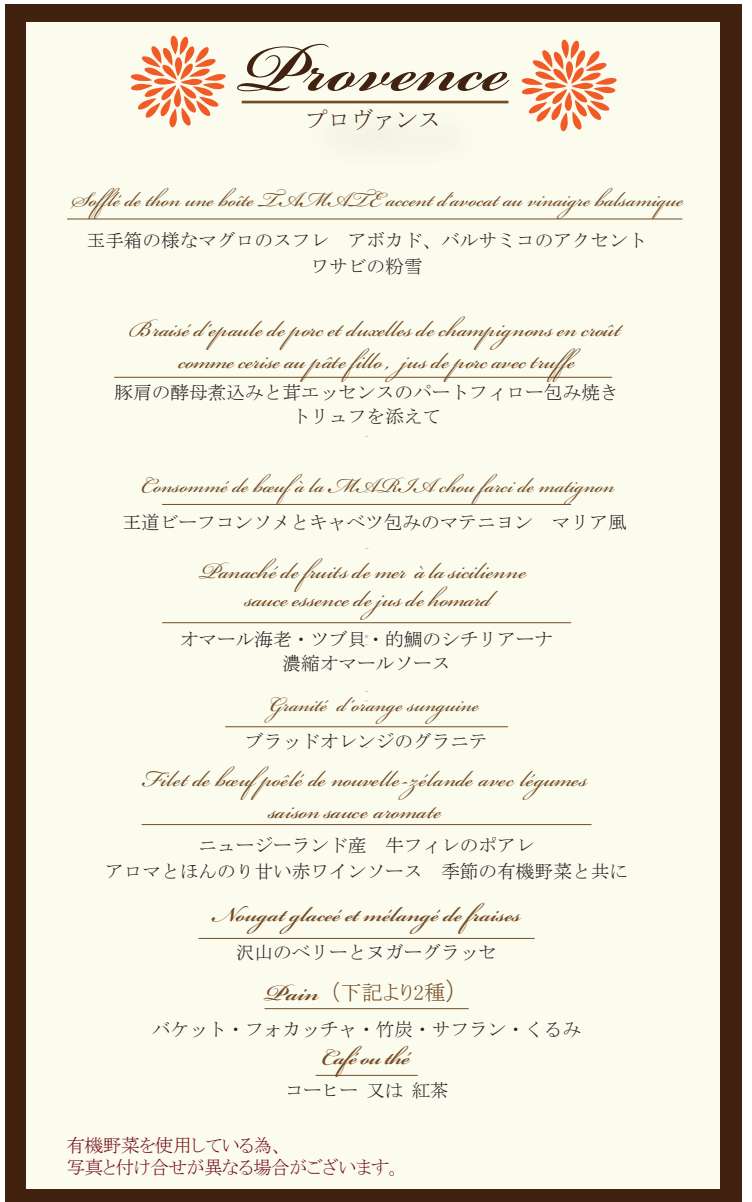 Provence
プロヴァンス
Sofflé de thon une boîte TAMATE accent d'avocat au vinaigre balsamique
玉手箱の様なマグロのスフレ　アボカド、バルサミコのアクセント
ワサビの粉雪
Braisé d'epaule de porc et duxelles de champignons en croût
comme cerise au pâte fillo , jus de porc avec truffe
豚肩の酵母煮込みと茸エッセンスのパートフィロー包み焼き
トリュフを添えて
Consommé de bœuf à la MARIA chou farci de matignon
王道ビーフコンソメとキャベツ包みのマテニヨン　マリア風
Panaché de fruits de mer à la sicilienne
sauce essence de jus de homard
オマール海老・ツブ貝・的鯛のシチリアーナ
濃縮オマールソース
Granité d'orange sunguine
ブラッドオレンジのグラニテ
Filet de bœuf poêlé de nouvelle-zélande avec légumes
saison sauce aromate
ニュージーランド産　牛フィレのポアレ
アロマとほんのり甘い赤ワインソース　季節の有機野菜と共に
Nougat glaceé et mélangé de fraises
沢山のベリーとヌガーグラッセ
Pain（下記より2種）
バケット・フォカッチャ・竹炭・サフラン・くるみ
Café ou thé
コーヒー 又は 紅茶
有機野菜を使用している為、
写真と付け合せが異なる場合がございます。